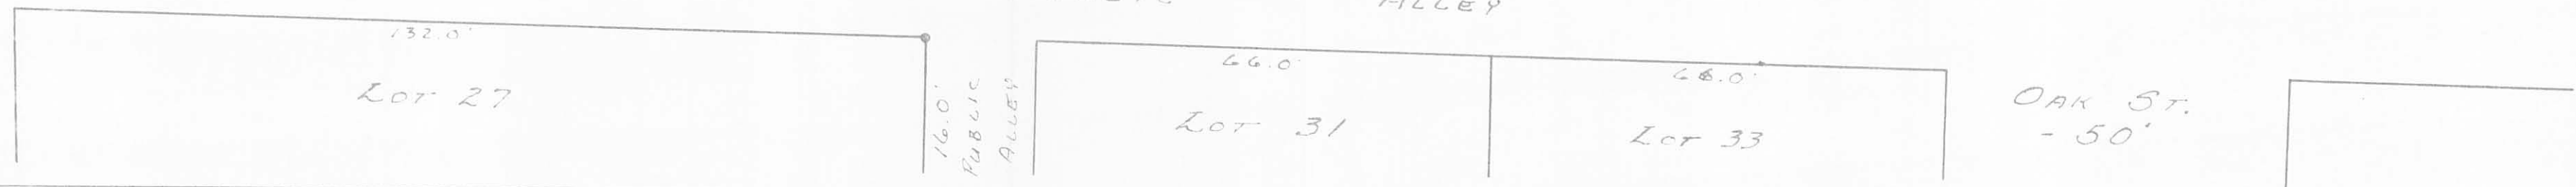 ALLEY
132.0'
Lot 27
16.0'
PUBLIC
ALLEY
66.0'
Lot 31
66.0'
Lot 33
OAK ST.
- 50'